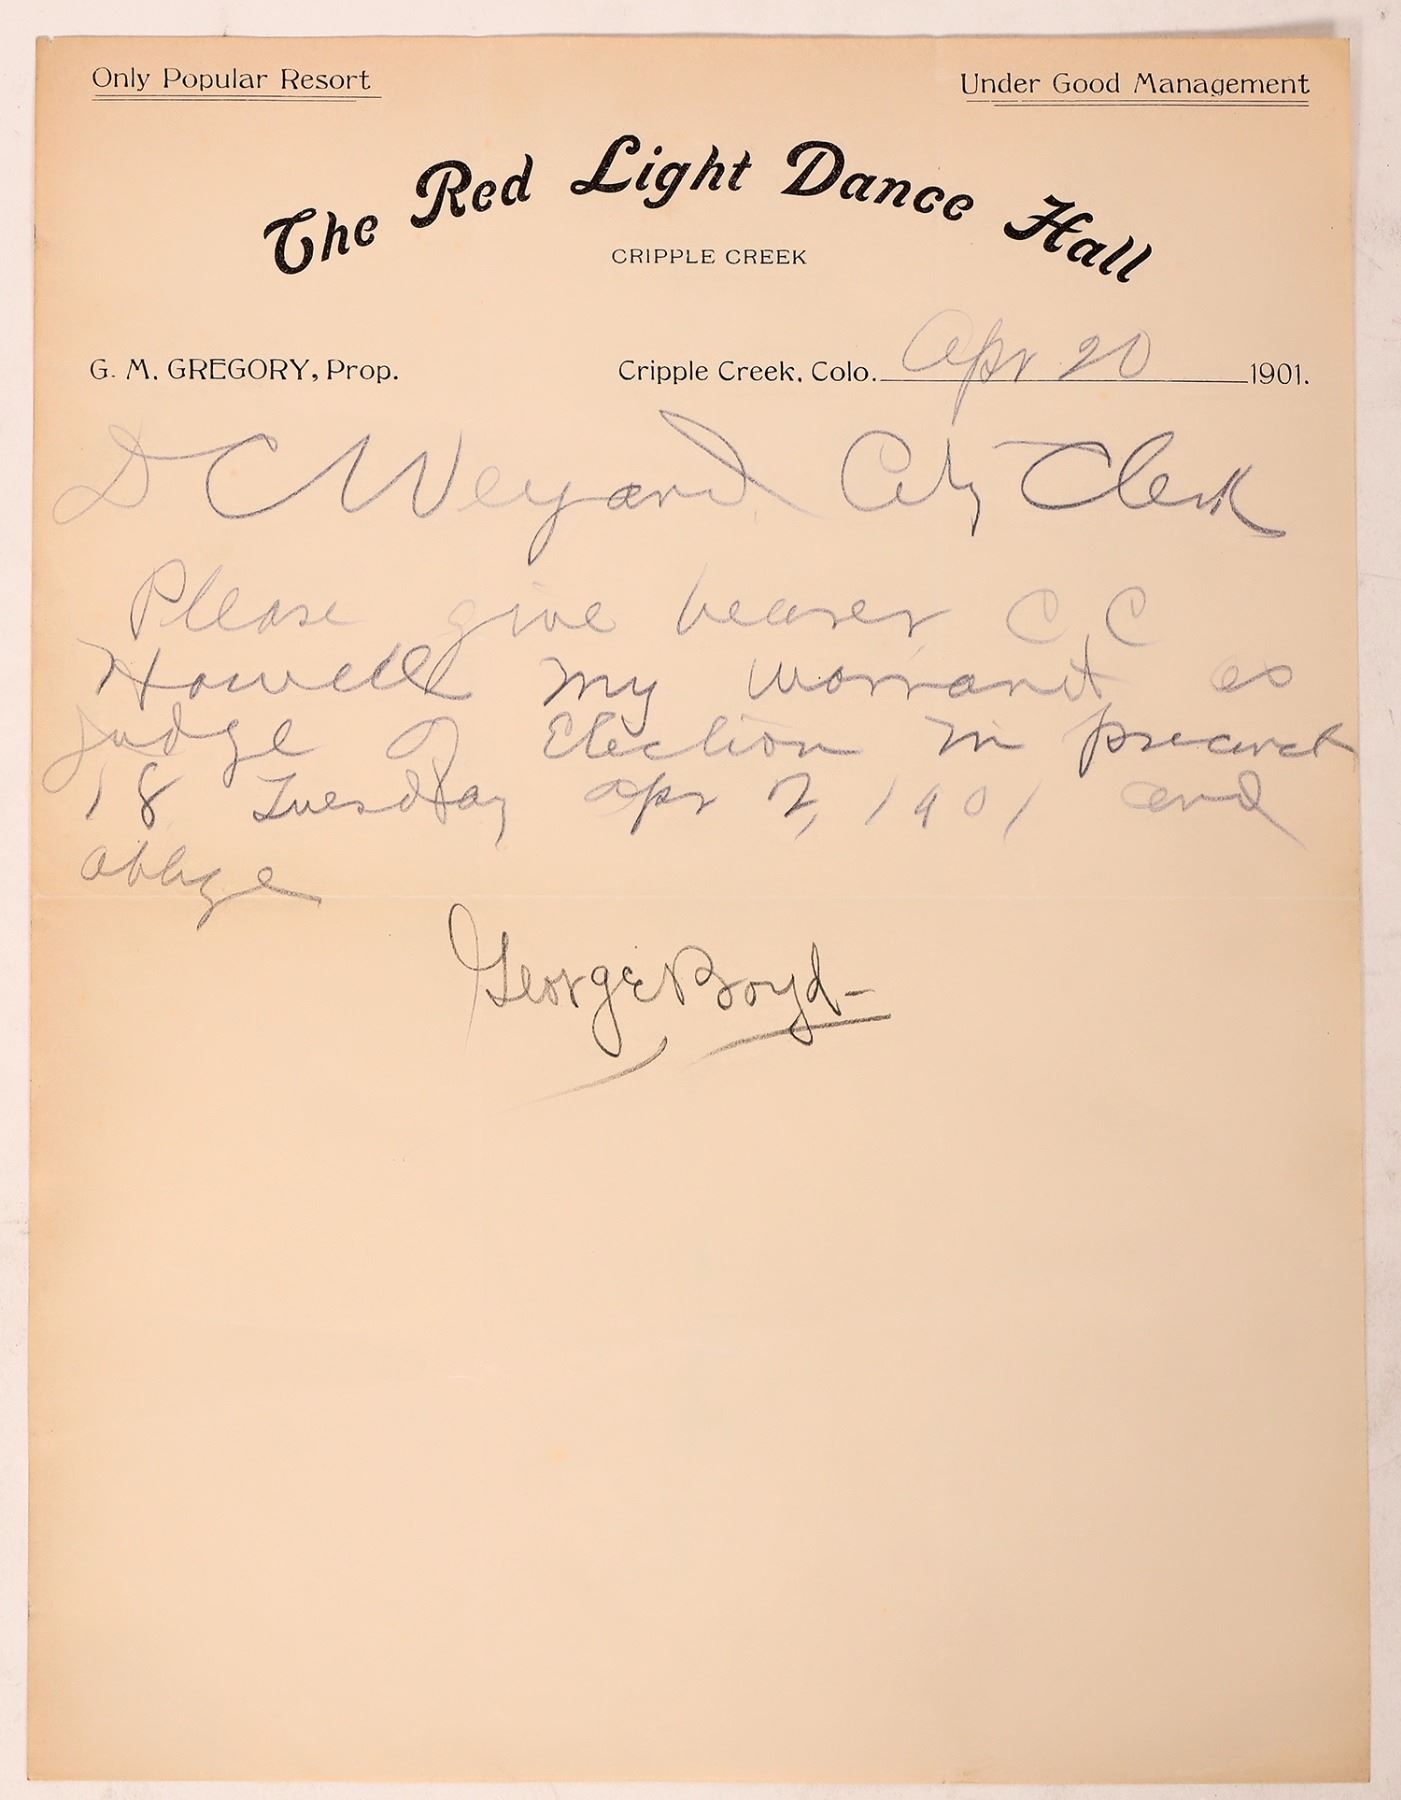 Only Popular Resort
Under Good Management
The Red Light Dance Hall
CRIPPLE CREEK
G. M. GREGORY, Prop.
Cripple Creek, Colo. Apr 20 1901.
D C Weyand City Clerk
Please give bearer C C
Howell my warrant as
judge of Election in precinct
18 Tuesday Apr 2, 1901 and
oblige
George Boyd